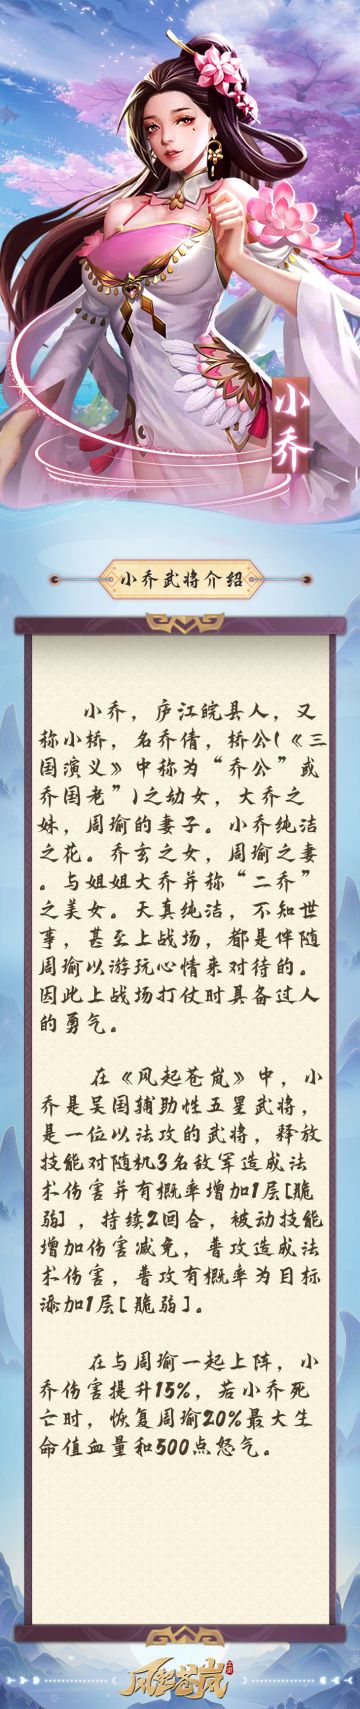 小乔
小乔武将介绍
小乔，庐江皖县人，又
称小桥，名乔倩，桥公(《三
国演义》中称为“乔公”或
乔国老”)之幼女，大乔之
妹，周瑜的妻子。小乔纯洁
之花。乔玄之女，周瑜之妻
。与姐姐大乔并称“二乔”
之美女。天真纯洁，不知世
事，甚至上战场，都是伴随
周瑜以游玩心情来对待的。
因此上战场打仗时具备过人
的勇气。
在《风起苍岚》中，小
乔是吴国辅助性五星武将，
是一位以法攻的武将，释放
技能对随机3名敌军造成法
术伤害并有概率增加1层[脆
弱]，持续2回合，被动技能
增加伤害减免，普攻造成法
术伤害，普攻有概率为目标
添加1层[脆弱]。
在与周瑜一起上阵，小
乔伤害提升15%，若小乔死
亡时，恢复周瑜20%最大生
命值血量和500点怒气。
风起苍岚